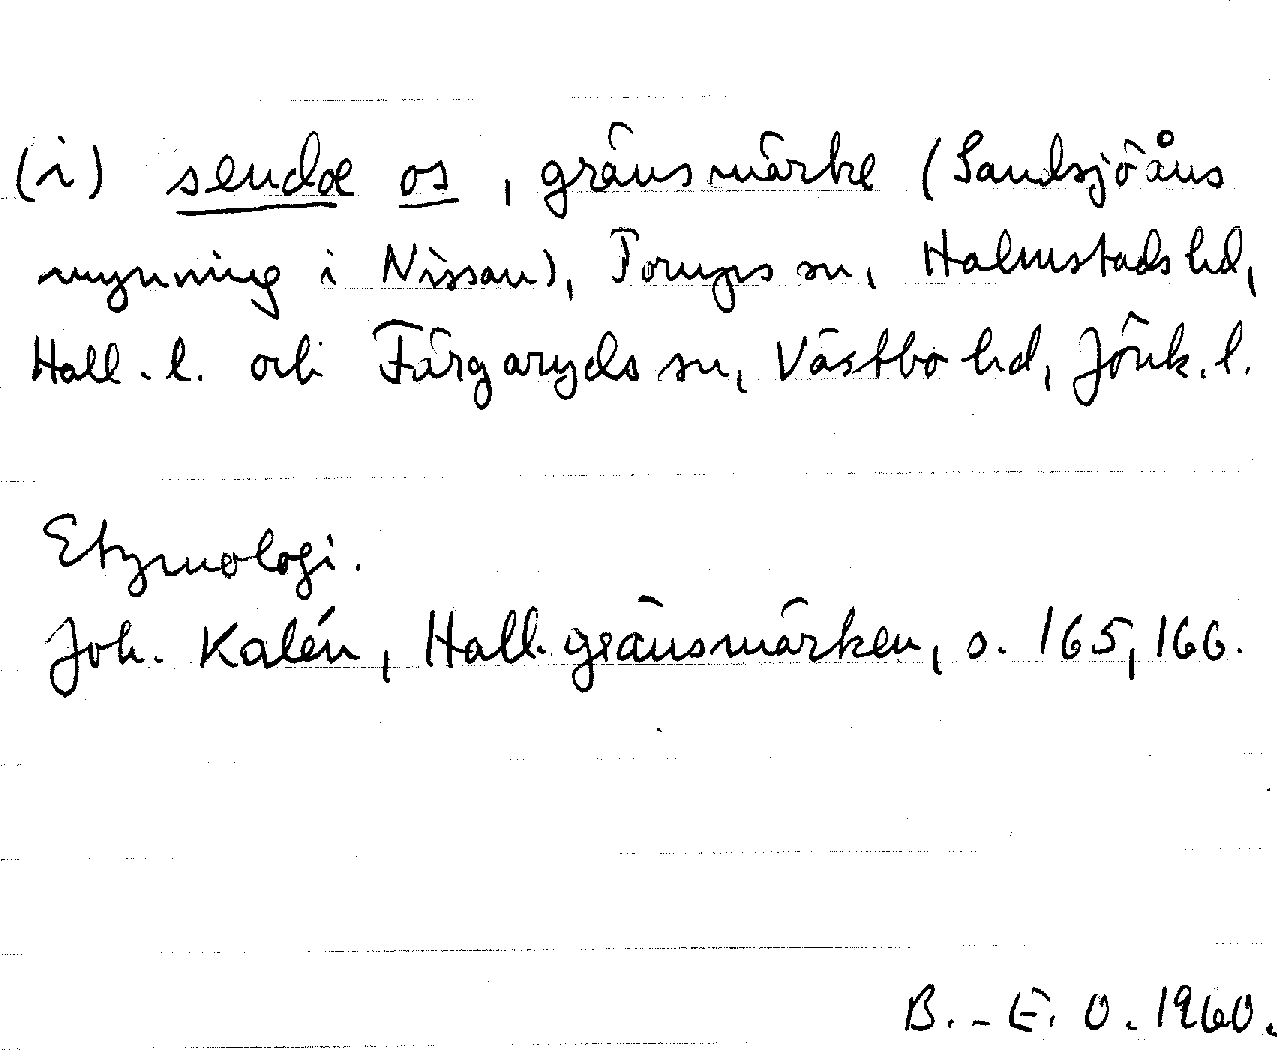 (i) sendæ os, gränsmärke (Sandsjöåns
mynning i Nissan), Torups sn, Halmstads hd,
Hall. l. och Färgaryds sn, Västbo hd, Jönk. l.
Etymologi.
Joh. Kalén, Hall. gränsmärken, s. 165, 166.
B.-E. O. 1960.